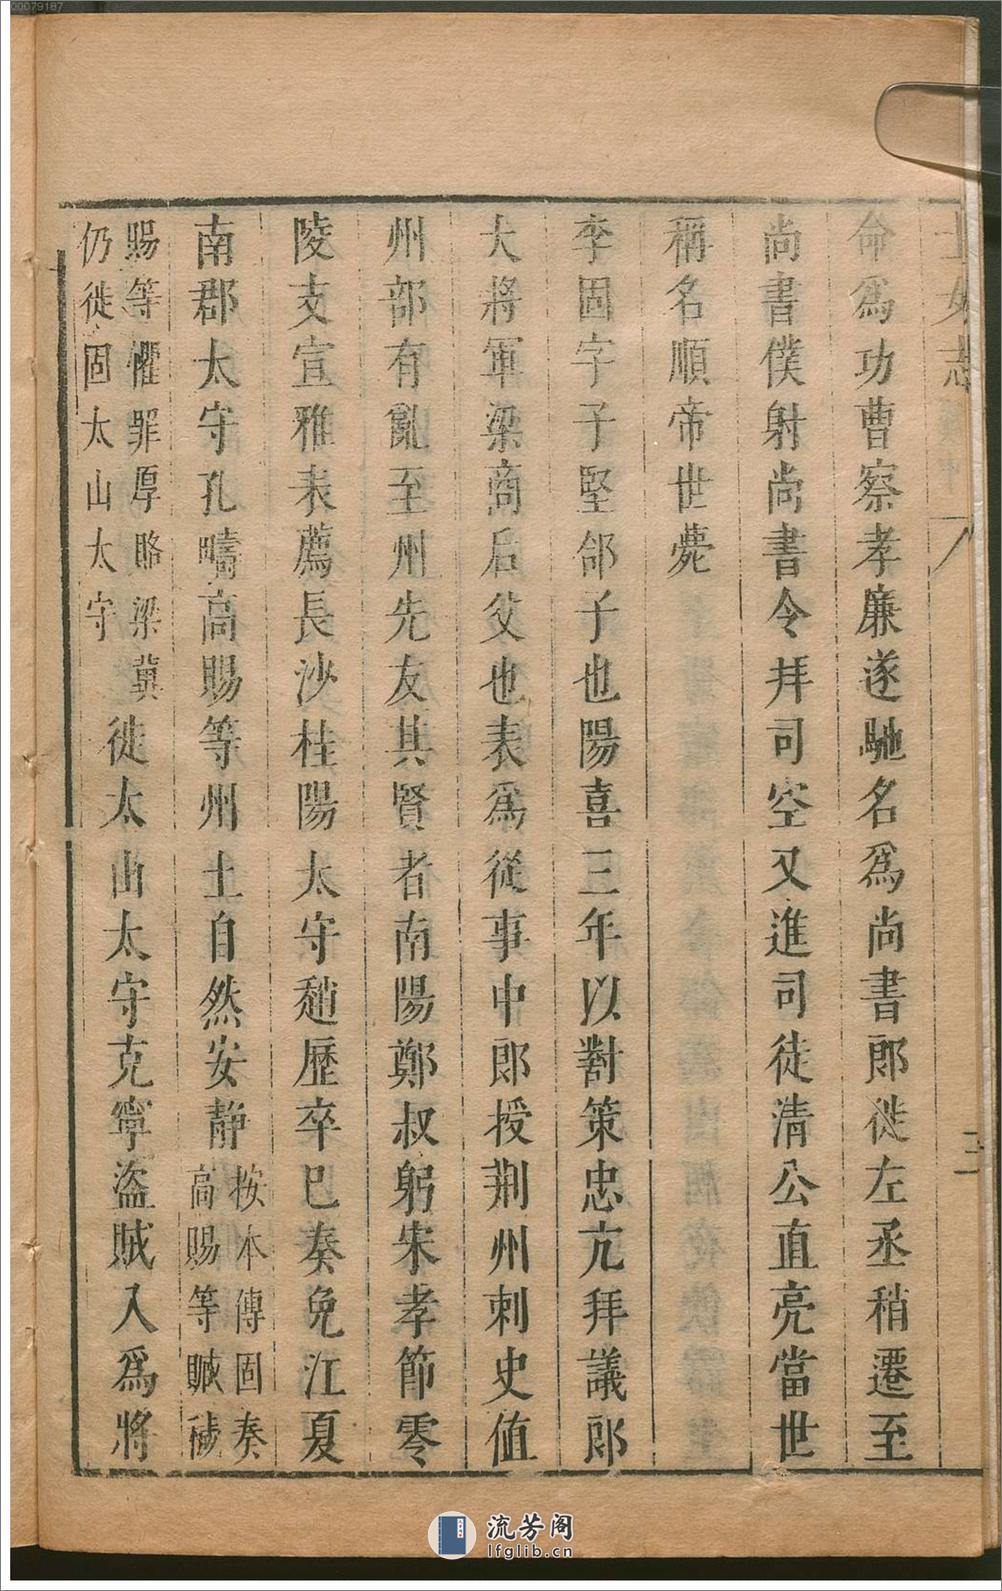 命爲功曹察孝廉遂馳名爲尚書郎徙左丞稍遷至
尚書僕射尚書令拜司空又進司徒清公直亮當世
稱名順帝世薨
李固字子堅郃子也陽喜三年以對策忠亢拜議郎
大將軍梁商后父也表爲從事中郎授荆州刺史值
州部有亂至州先友其賢者南陽鄭叔躬宋孝節零
陵支宣雅表薦長沙桂陽太守趙歷卒巳奏免江夏
南郡太守孔疇高賜等州土自然安靜
按本傳固奏
高賜等贓穢
賜等懼罪厚賂梁冀
仍徙固太山太守
徙太山太守克寧盜賊入爲將
士女志
流芳阁
lfglib.cn
00079187